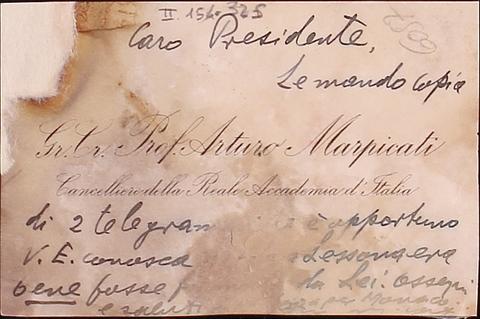 II 154.325
Caro Presidente,
Le mando copia
Gr. Cr. Prof. Arturo Marpicati
Cancelliere della Reale Accademia d'Italia
di 2 telegram è opportuno
V. E. conosca Lessona era
bene fosse da Lei. Ossequi
e saluti per Monaco